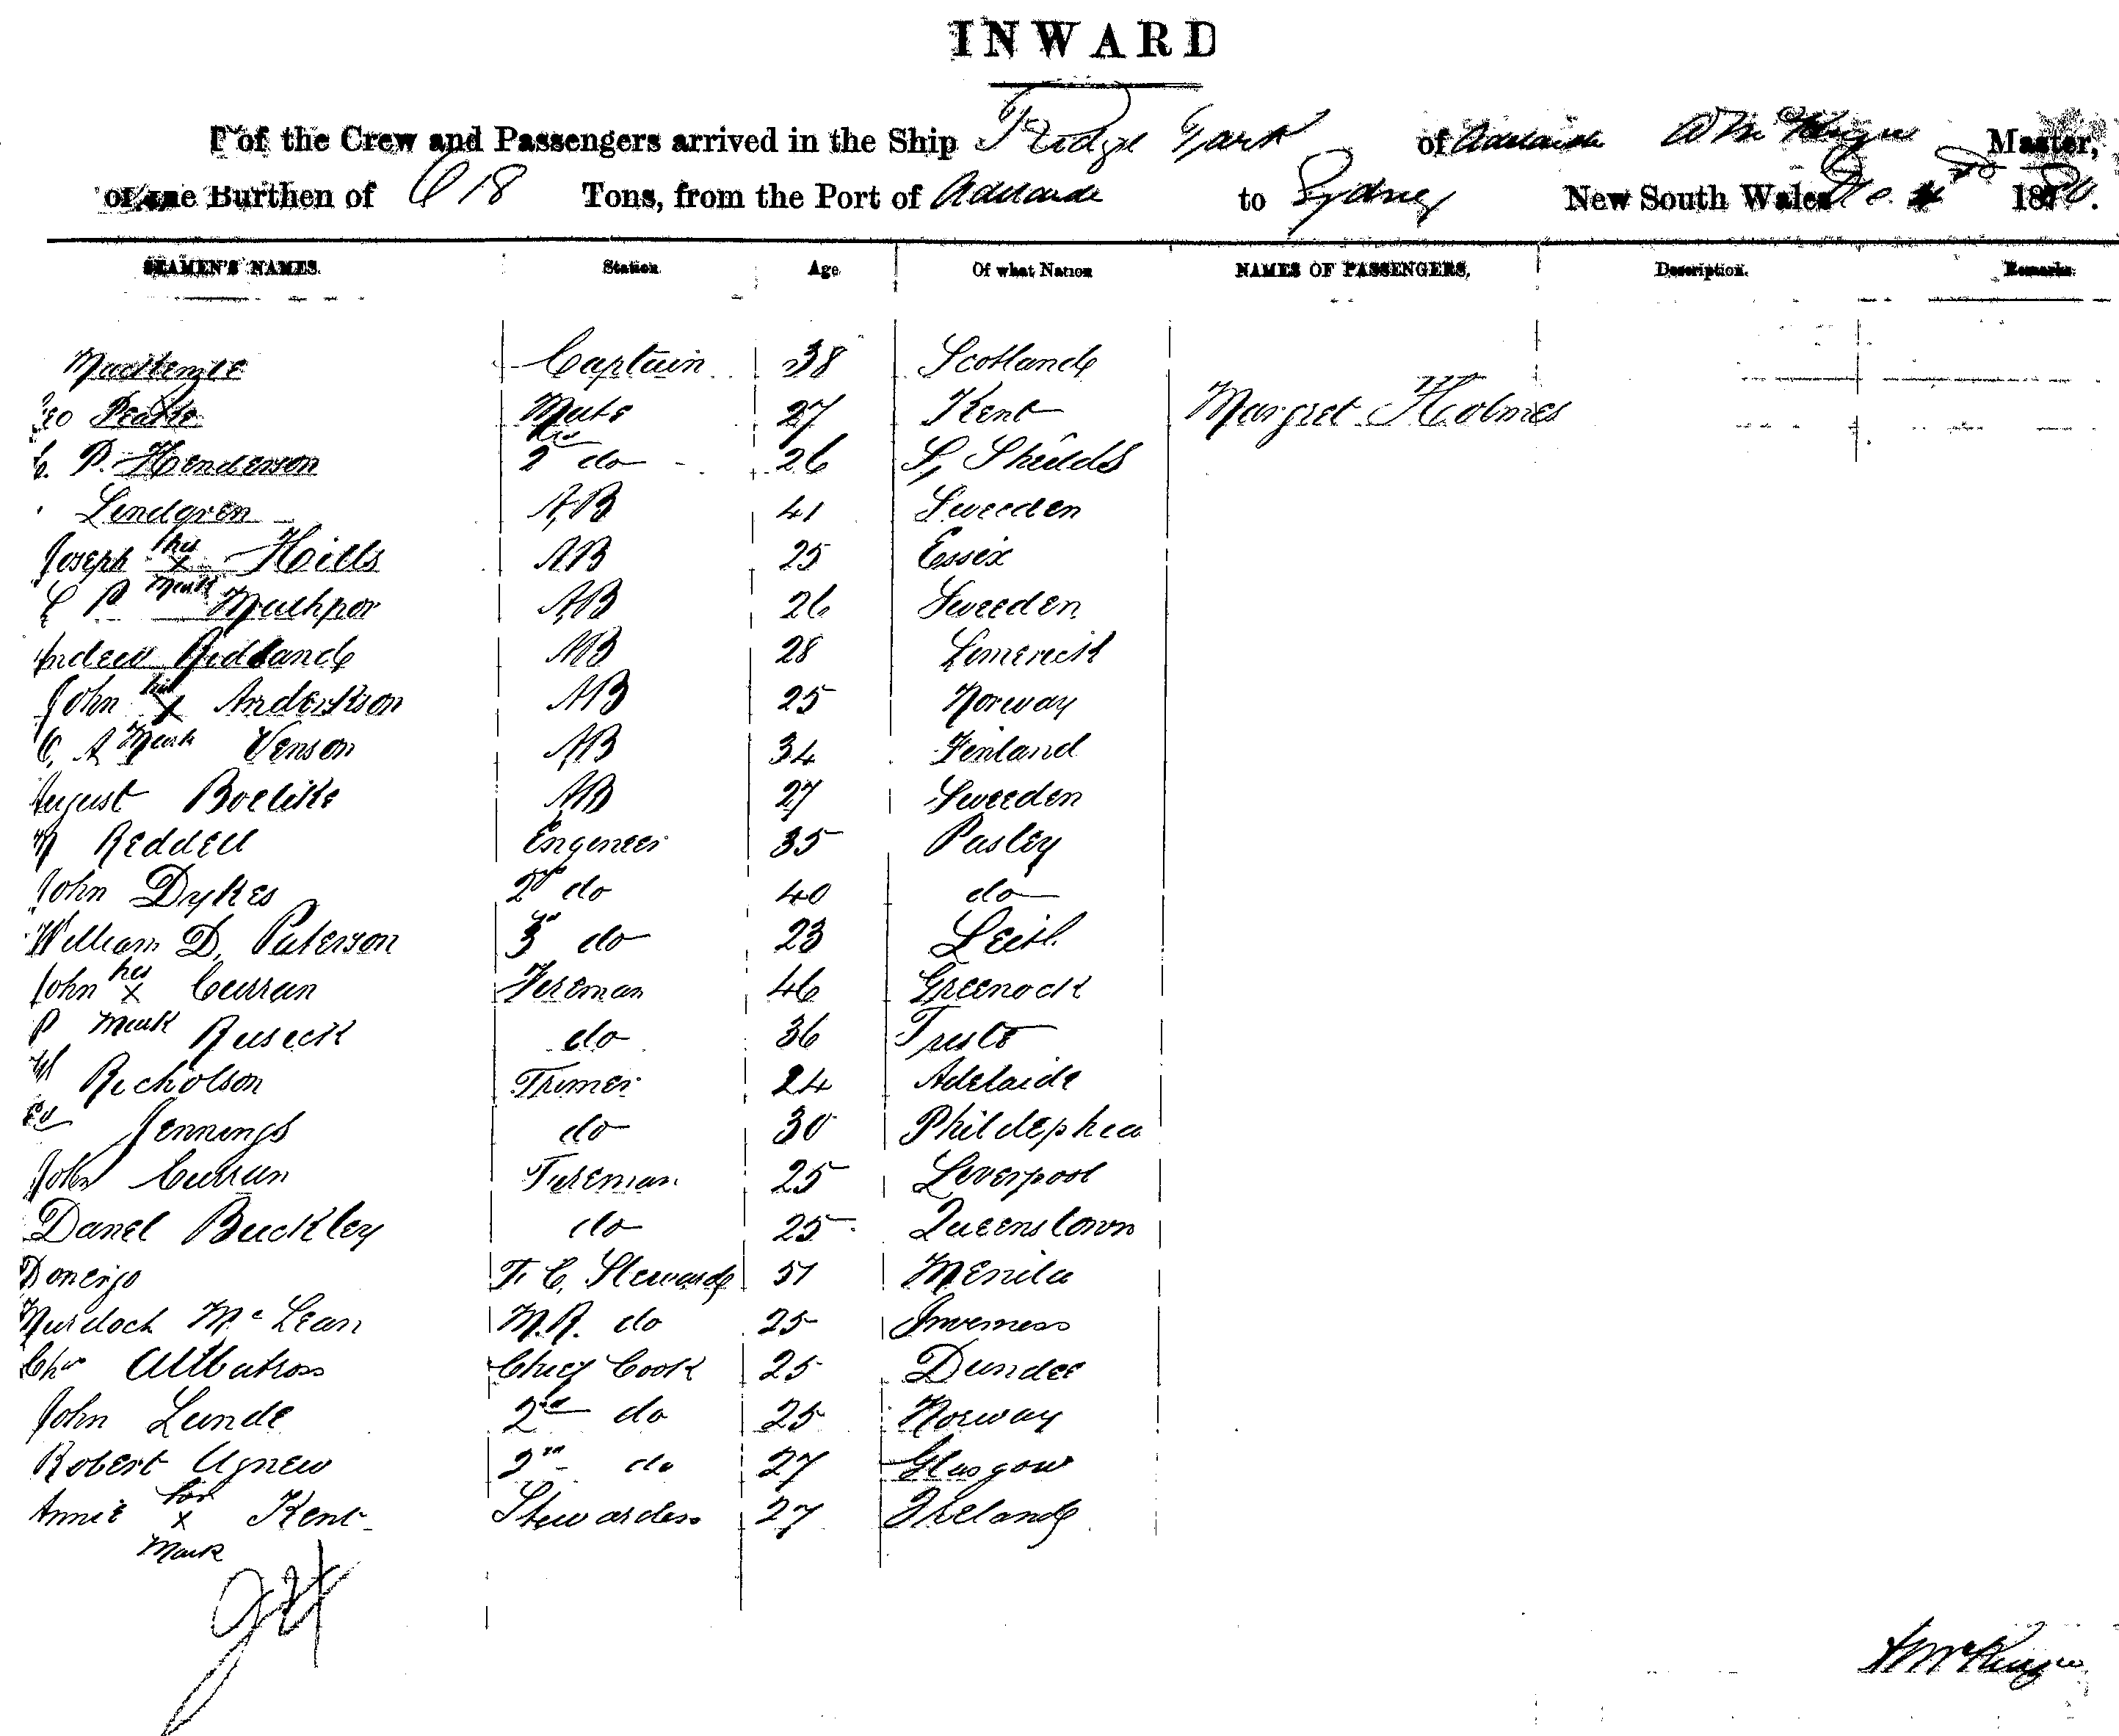 INWARD
of the Crew and Passengers arrived in the Ship Ridge Park of Adelaide Master,
of the Burthen of 618 Tons, from the Port of Adelaide to Sydney New South Wales 18
SEAMEN'S NAMES. Station Age Of what Nation NAMES OF PASSENGERS, Description. Remarks
Captain 38 Scotland
Mate 27 Kent Margret Holmes
P. Henderson 2nd do 26 S, Sheilds
Lindgren AB 41 Sweeden
Joseph his x Mark Hills AB 25 Essix
AB 26 Sweeden
Andrew AB 28 Limerick
John his x Mark Anderson AB 25 Norway
C. A Venson AB 34 Finland
August AB 27 Sweeden
Reddell Engeneer 35 Pasley
John Dykes 2nd do 40 do
William D. Paterson 3rd do 23 Leith
John his x Mark Curran Fireman 46 Greenock
P Rusick do 36 Treste
Richolson Trimer 24 Adelaide
Jennings do 30 Phildephea
John Curran Fireman 25 Liverpool
Danel Buckley do 25 Queenstown
F. C. Steward 51 Menila
Murdoch McLean M.R. do 25 Inverness
Chas Albutross Chief Cook 25 Dundee
John Lunde 2nd do 25 Norway
Robert Agnew do 27 Glasgow
Annie her x Mark Kent Stewardess 27 Ireland